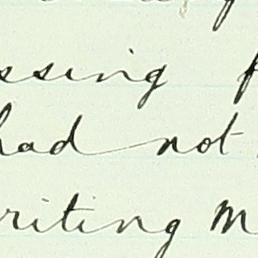 ssing f
had not
riting M